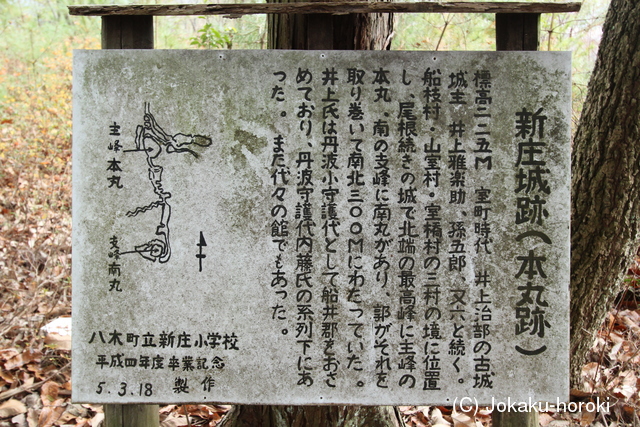 新庄城跡(本丸跡)
標高二二五M　室町時代　井上治部の古城
城主　井上雅楽助、孫五郎、又六と続く。
船枝村・山室村・室橋村の三村の境に位置
し、尾根続きの城で北端の最高峰に主峰の
本丸、南の支峰に南丸があり、郭がそれを
取り巻いて南北三〇〇Mにわたっていた。
井上氏は丹波小守護代として船井郡をおさ
めており、丹波守護代内藤氏の系列下にあ
った。　また代々の館でもあった。
主峰本丸
支峰南丸
八木町立新庄小学校
平成四年度卒業記念
5.3.18　製作
(C) Jokaku-horoki